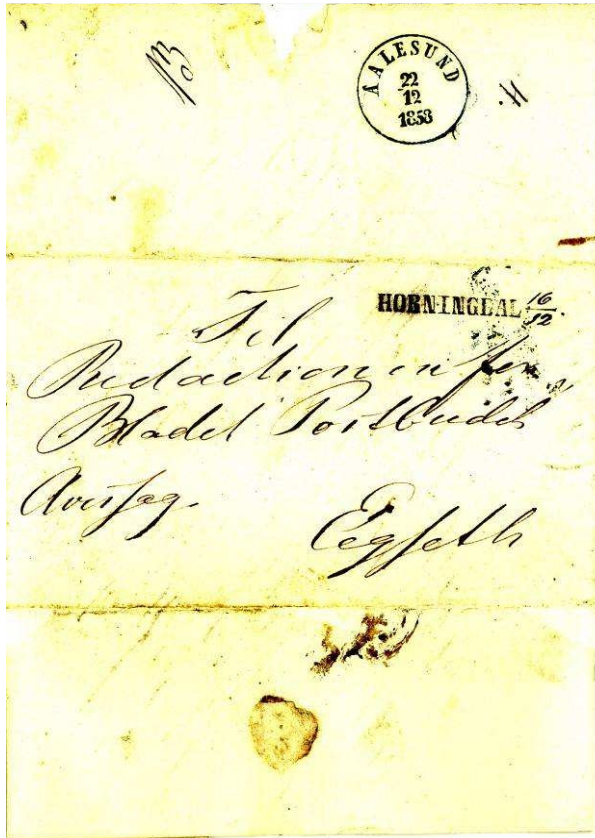 AALESUND
22
12
1858
HORNINGDAL 16/12.
Til
Redactionen for
Bladet Postbudet
Avissag.
Eegseth